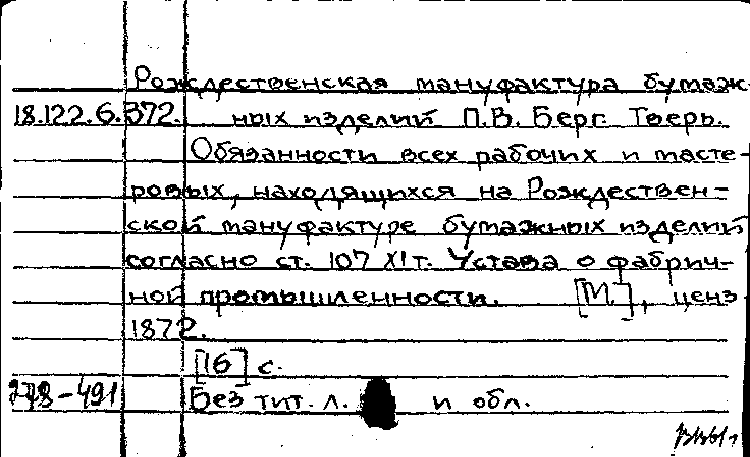 Рождественская мануфактура бумаж-
18.122.6.372. ных изделий П.В. Берг. Тверь.
Обязанности всех рабочих и масте-
ровых, находящихся на Рождествен-
ской мануфактуре бумажных изделий
согласно ст. 107 XI т. Устава о фабрич-
ной промышленности. [М.], ценз.
1872.
[16] с.
278-491 Без тит. л. и обл.